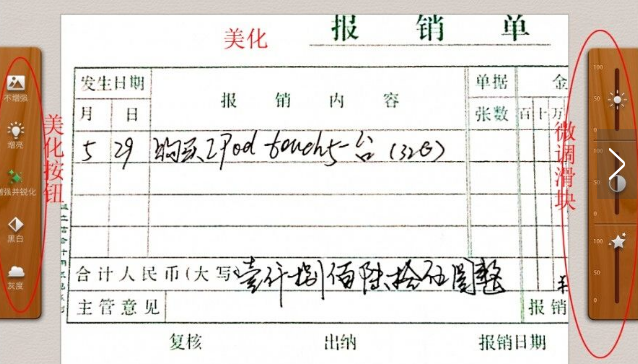 美化
报 销 单
发生日期
单据
金
月 日
报 销 内 容
张数
百十万
5 29 购买iPod touch5一台 (32G)
合计人民币(大写) 壹仟捌佰陆拾伍圆整
主管意见
报销
复核 出纳 报销日期
美化按钮
不增强
增亮
增强并锐化
黑白
灰度
微调滑块
100
50
0
100
50
0
100
50
0